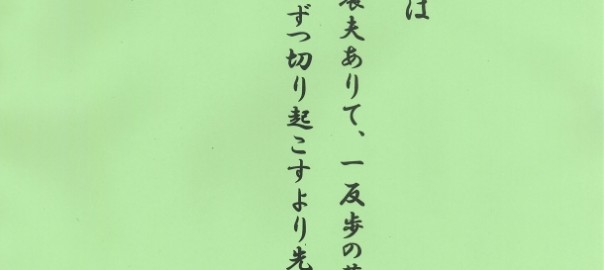 は
農夫ありて、一反歩の
ずつ切り起こすより先